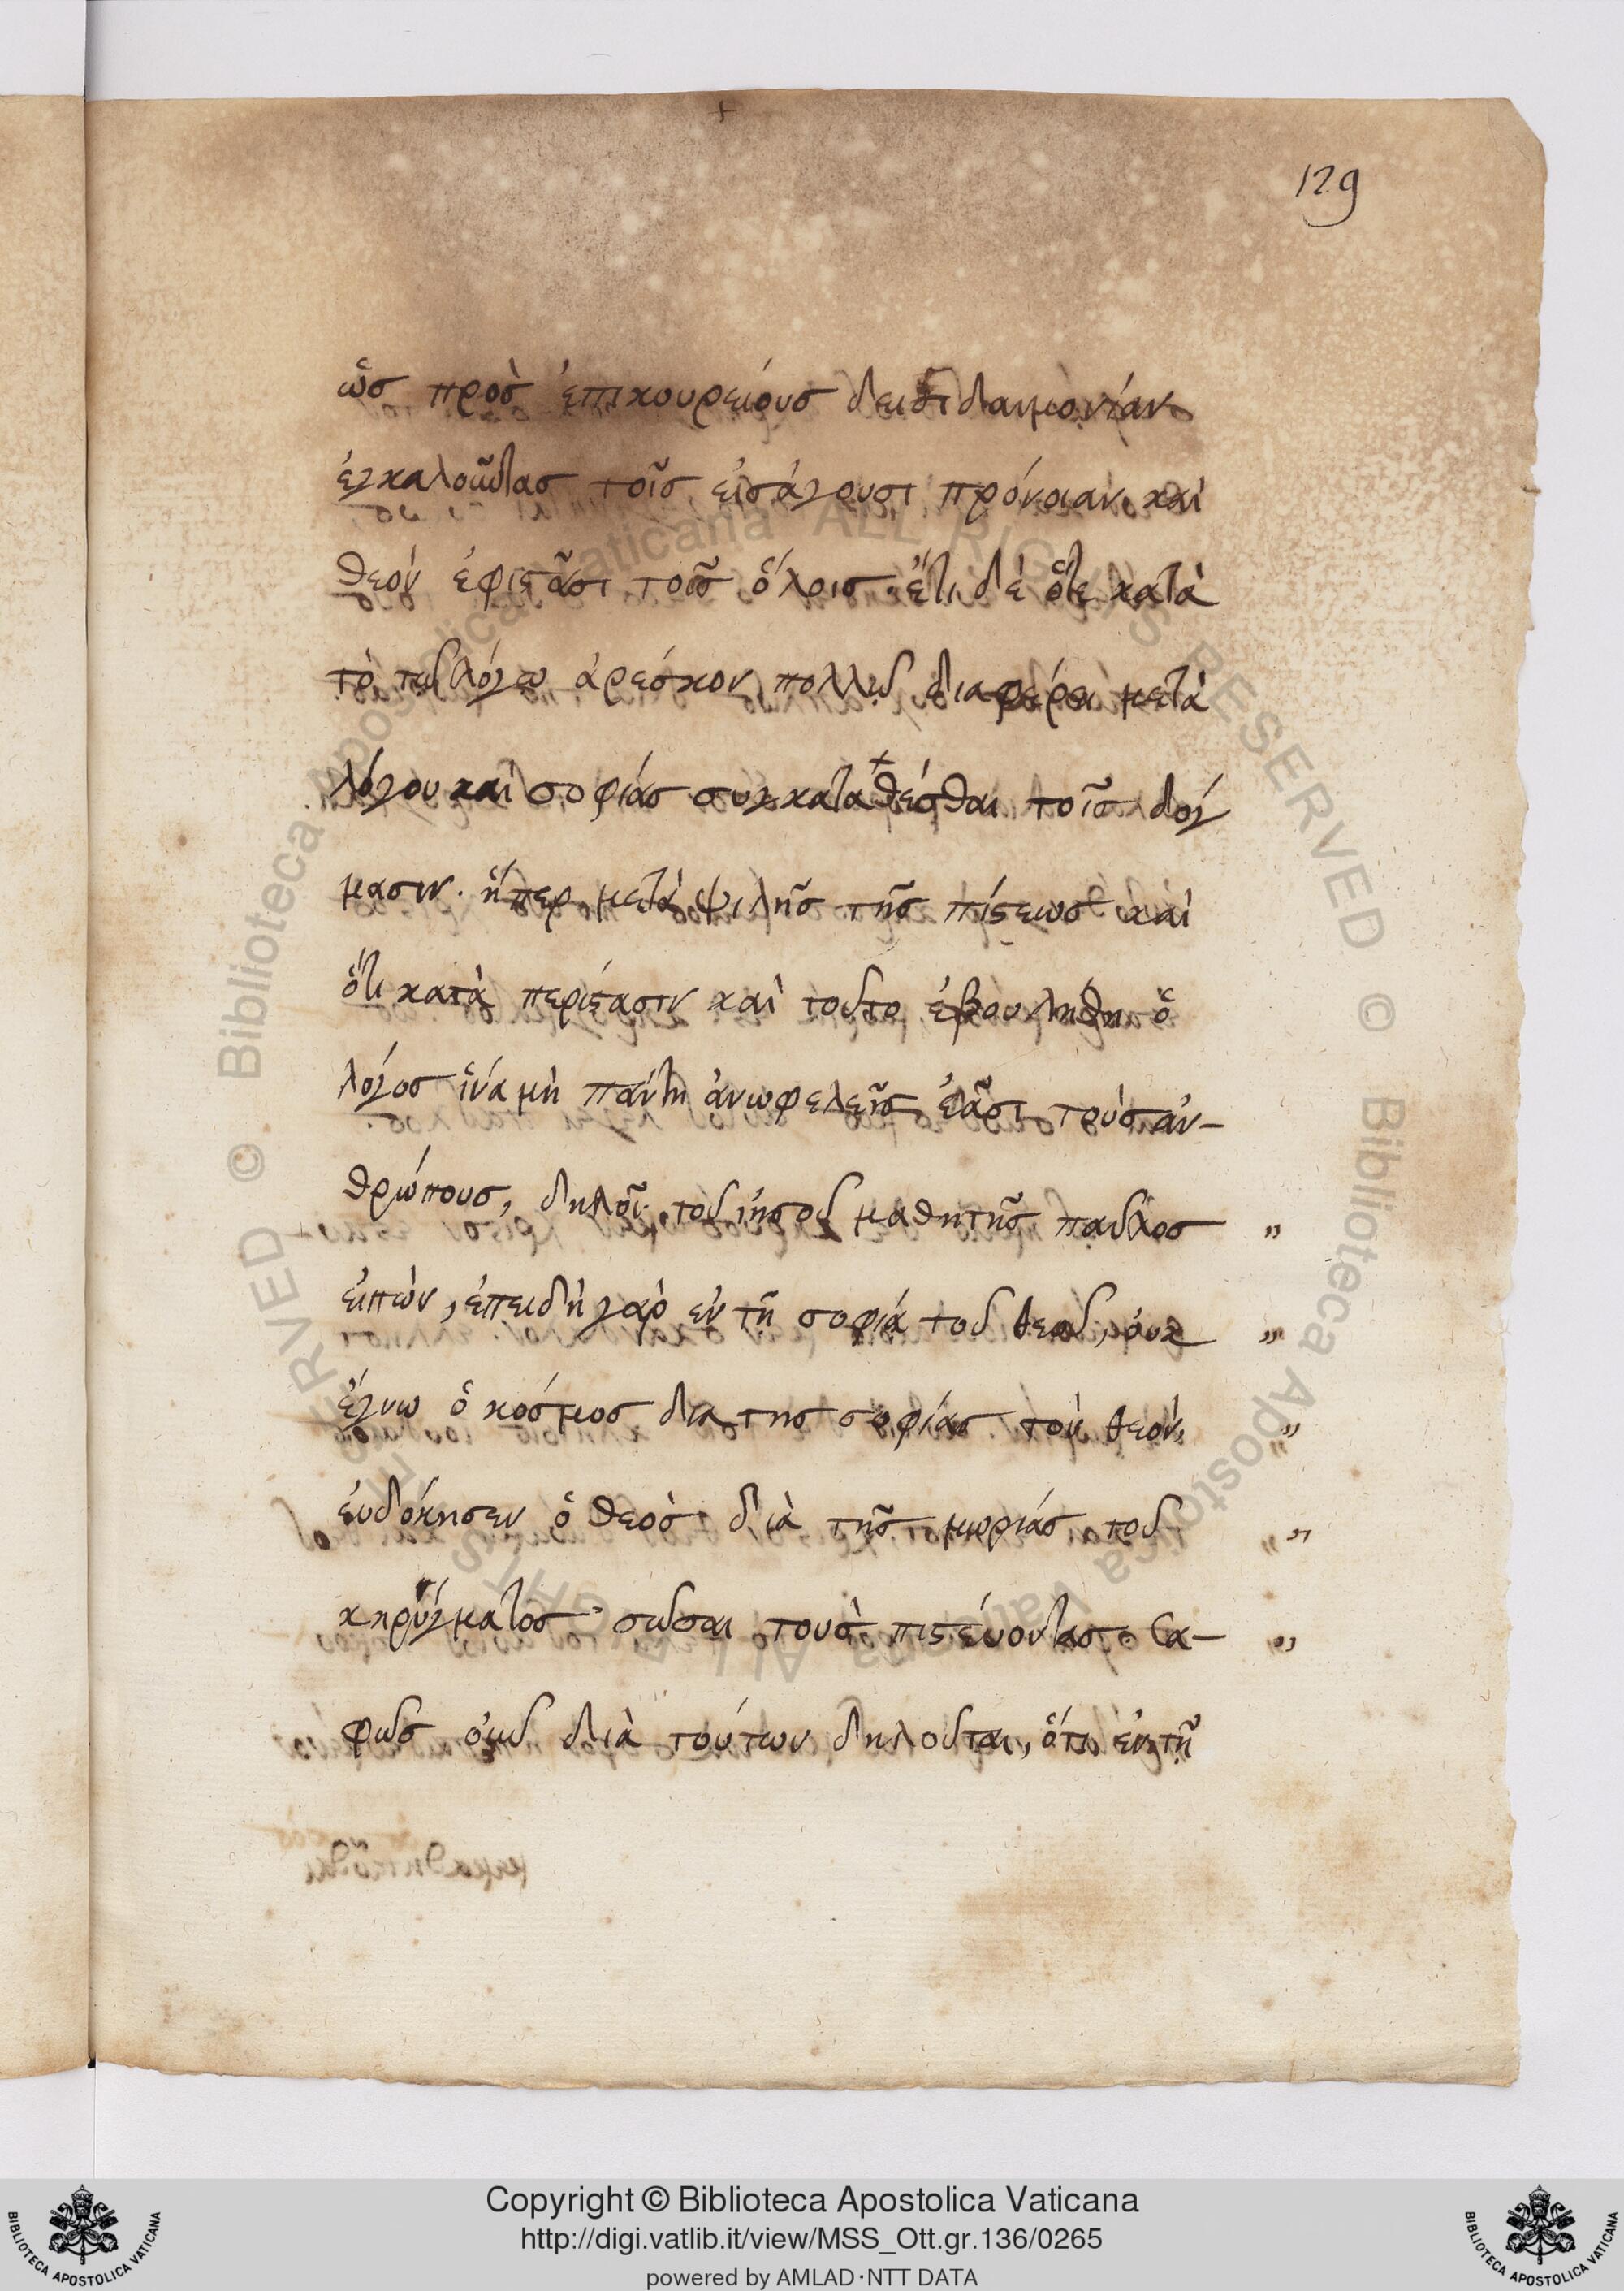 129
ὡς πρὸς ἐπικουρείους δεισιδαιμονίαν
ἐγκαλοῦντας τοῖς εἰσάγουσι πρόνοιαν καὶ
θεὸν ἐφιστᾶσι τοῖς ὅλοις. ἔτι δὲ ὅτε κατὰ
τὸ τῶ λόγω ἀρέσκον, πολλῶ διαφέρει μετὰ
λόγου καὶ σοφίας συγκατα+θέσθαι τοῖς δόγ
μασιν. ἤπερ μετὰ ψιλῆς τῆς πίστεως καὶ
ὅτι κατὰ περίστασιν καὶ τοῦτο ἐβουλήθη ὁ
λόγος ἵνα μὴ πάντη ἀνωφελεῖς ἐάσῃ τοὺς ἀν-
θρώπους, δηλοῖ τοῦ ἰησοῦ μαθητῆς παῦλος „
εἰπὼν, ἐπειδὴ γὰρ ἐν τῆ σοφία τοῦ θεοῦ, οὐκ „
ἔγνω ὁ κόσμος δια της σοφίας τὸν θεὸν, „
ἐυδόκησεν ὁ θεὸς διὰ τῆς μωρίας τοῦ „
κηρύγματος σῶσαι τοὺς πιστεύοντας. Σα- „
φῶς οὖν διὰ τούτων δηλοῦται, ὅτι ἐν τῆ
Copyright © Biblioteca Apostolica Vaticana
http://digi.vatlib.it/view/MSS_Ott.gr.136/0265
powered by AMLAD·NTT DATA
BIBLIOTECA APOSTOLICA VATICANA
BIBLIOTECA APOSTOLICA VATICANA